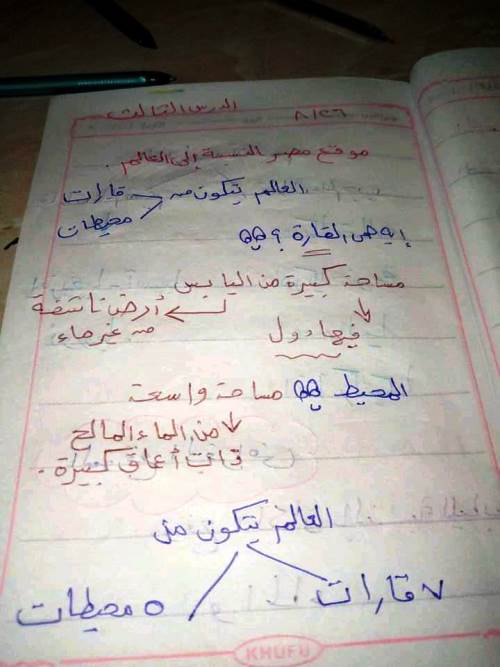 الدرس الثالث
٨/٢٦
موقع مصر النسبة إلى العالم.
العالم يتكون من قارات
محيطات
إيه هى القارة ؟
مساحة كبيرة من اليابس
أرض ناشفة
من غير ماء
فيها دول
المحيط مساحة واسعة
من الماء المالح
ذات أعماق كبيرة.
العالم يتكون من
٧ قارات ٥ محيطات
KHUFU